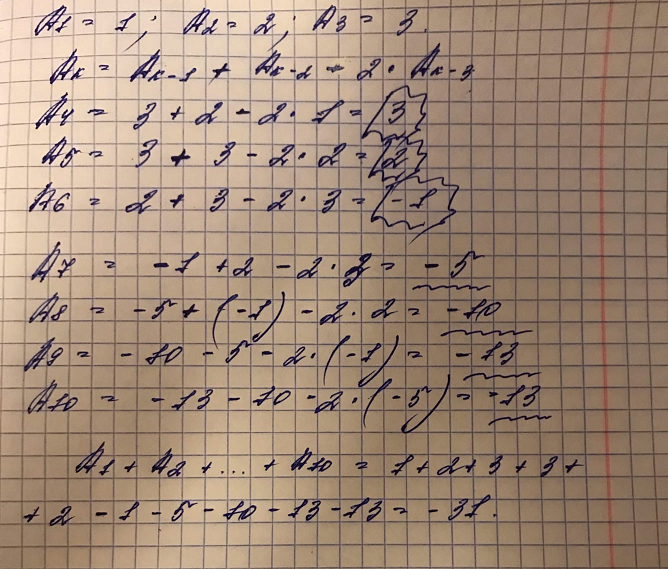 A1 = 1; A2 = 2; A3 = 3.
Ak = Ak-1 + Ak-2 - 2 · Ak-3
A4 = 3 + 2 - 2 · 1 = 3
A5 = 3 + 3 - 2 · 2 = 2
A6 = 2 + 3 - 2 · 3 = -1
A7 = -1 + 2 - 2 · 3 = -5
A8 = -5 + (-1) - 2 · 2 = -10
A9 = -10 - 5 - 2 · (-1) = -13
A10 = -13 - 10 - 2 · (-5) = -13
A1 + A2 + ... + A10 = 1 + 2 + 3 + 3 +
+ 2 - 1 - 5 - 10 - 13 - 13 = -31.